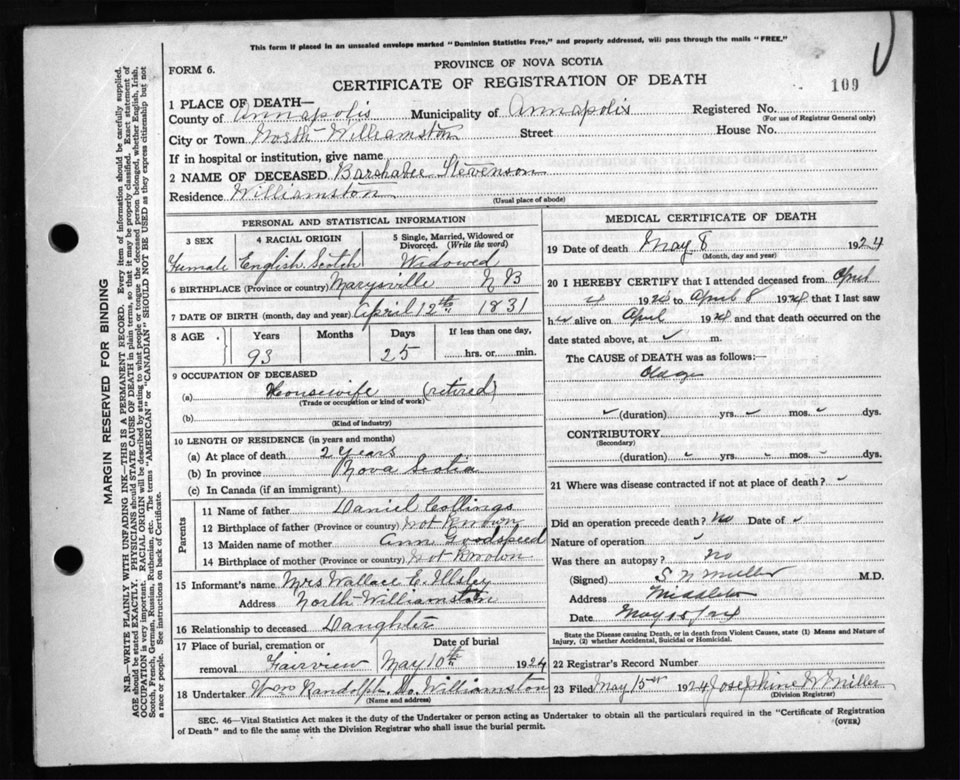 This form if placed in an unsealed envelope marked "Dominion Statistics Free," and properly addressed, will pass through the mails "FREE."
FORM 6.
PROVINCE OF NOVA SCOTIA
CERTIFICATE OF REGISTRATION OF DEATH
109
1 PLACE OF DEATH—
County of Annapolis Municipality of Annapolis Registered No.
(For use of Registrar General only)
City or Town North Williamston Street House No.
If in hospital or institution, give name
2 NAME OF DECEASED Barshabee Stevenson
Residence Williamston
(Usual place of abode)
PERSONAL AND STATISTICAL INFORMATION
3 SEX 4 RACIAL ORIGIN 5 Single, Married, Widowed or Divorced. (Write the word)
Female English Scotch Widowed
6 BIRTHPLACE (Province or country) Marysville N B
7 DATE OF BIRTH (month, day and year) April 12th 1831
8 AGE Years Months Days If less than one day,
93 25 hrs. or min.
9 OCCUPATION OF DECEASED
(a) Housewife (retired)
(Trade or occupation or kind of work)
(b)
(Kind of industry)
10 LENGTH OF RESIDENCE (in years and months)
(a) At place of death 2 years
(b) In province Nova Scotia
(c) In Canada (if an immigrant)
Parents
11 Name of father Daniel Collings
12 Birthplace of father (Province or country) Not Known
13 Maiden name of mother Ann Goodspeed
14 Birthplace of mother (Province or country) Not Known
15 Informant's name Mrs Wallace C. Illsley
Address North Williamston
16 Relationship to deceased Daughter
17 Place of burial, cremation or Date of burial
removal Fairview May 10th 1924
18 Undertaker Wm Randolph. Do. Williamston
(Name and address)
MEDICAL CERTIFICATE OF DEATH
19 Date of death May 8 1924
(Month, day and year)
20 I HEREBY CERTIFY that I attended deceased from April
4 1924 to April 8 1924 that I last saw
her alive on April 1924 and that death occurred on the
date stated above, at m.
The CAUSE of DEATH was as follows:
Old age
(duration) yrs. mos. dys.
CONTRIBUTORY
(Secondary)
(duration) yrs. mos. dys.
21 Where was disease contracted if not at place of death?
Did an operation precede death? No Date of
Nature of operation
Was there an autopsy? No
(Signed) S. N Miller M.D.
Address Middleton
Date May 15
State the Disease causing Death, or in death from Violent Causes, state (1) Means and Nature of
Injury, (2) whether Accidental, Suicidal or Homicidal.
22 Registrar's Record Number
23 Filed May 15 1924 Josephine Miller
(Division Registrar)
SEC. 46—Vital Statistics Act makes it the duty of the Undertaker or person acting as Undertaker to obtain all the particulars required in the "Certificate of Registration
of Death" and to file the same with the Division Registrar who shall issue the burial permit.
(OVER)
MARGIN RESERVED FOR BINDING
N.B.—WRITE PLAINLY WITH UNFADING INK—THIS IS A PERMANENT RECORD. Every item of information should be carefully supplied.
AGE should be stated EXACTLY. PHYSICIANS should STATE CAUSE OF DEATH in plain terms, so that it may be properly classified. Exact statement of
OCCUPATION is very important. RACIAL ORIGIN will be described by stating to what people or tongue the deceased person belonged, whether English, Irish,
Scotch, French, German, Russian, Ruthenian, etc. The terms "AMERICAN" or "CANADIAN" SHOULD NOT BE USED as they express citizenship but not
a race or people. See instructions on back of Certificate.